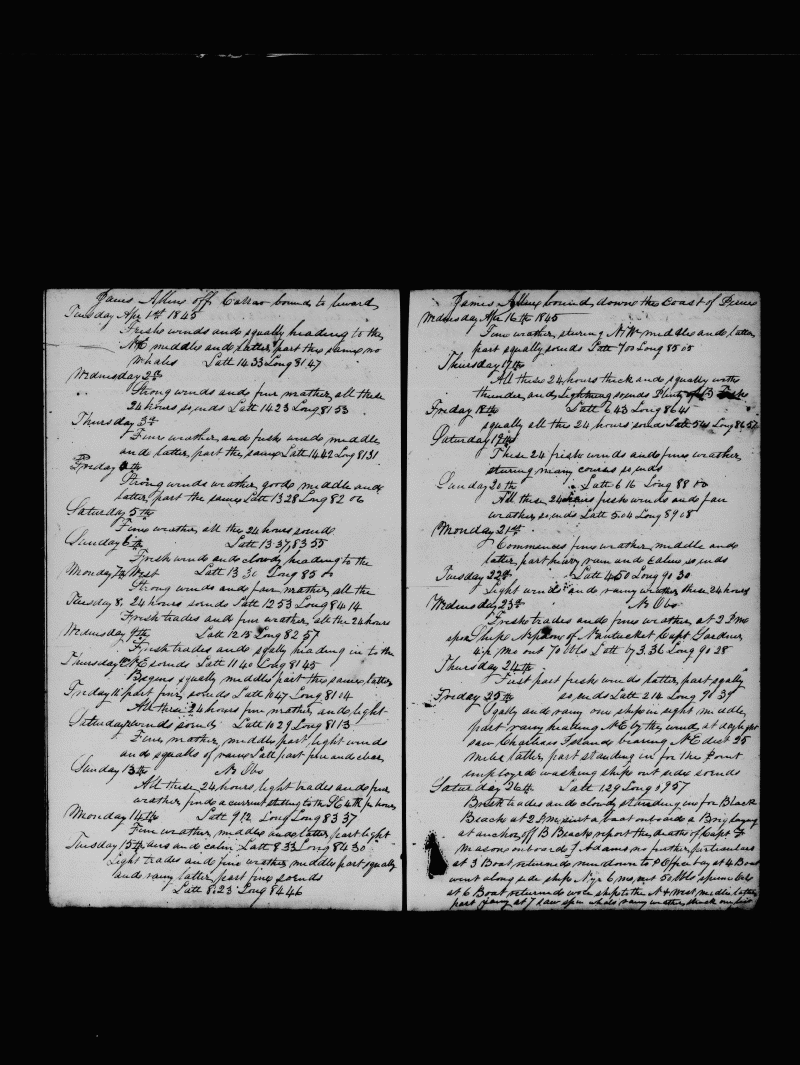 James Allen off Callao bound to leward
Tuesday Apr 1st 1845
Fresh winds and squally heading to the
NE middle and latter part the same no
whales Latt 14 33 Long 81 47
Wednesday 2nd
Strong winds and fine weather all these
24 hours so ends Latt 14 23 Long 81 53
Thursday 3rd
Fine weather and fresh winds middle
and latter part the same Latt 14 42 Long 81 31
Friday 4th
Strong winds weather good middle and
latter part the same Latt 13 28 Long 82 06
Saturday 5th
Fine weather all the 24 hours so ends
Sunday 6th Latt 13 37, 83 55
Fresh winds and cloudy heading to the
Monday 7th West Latt 13 30 Long 85 00
Strong winds and fair weather all the
Tuesday 8. 24 hours so ends Latt 12 53 Long 84 14
Fresh trades and fine weather all the 24 hours
Wednesday 9th Latt 12 18 Long 82 57
Fresh trades and sqally heading in to the
Thursday NE so ends Latt 11 40 Long 81 45
Begins squally middle part the same latter
Friday 11 part fine so ends Latt 10 47 Long 81 04
All these 24 hours fine weather and light
Saturday winds so ends Latt 10 29 Long 81 13
Fine weather middle part light winds
and squalls of rain Latt part fine and clear
Sunday 13th No Obs
All these 24 hours light trades and fine
weather find a current setting to the
Monday 14th Latt 9 12 Long 83 37
Fine weather middle and latter part light
Tuesday 15th airs and calm Latt 8 33 Long 84 30
Light trades and fine weather middle part squally
and rainy latter part fine so ends
Latt 8.23 Long 84 46
James Allen bound down the Coast of Peru
Wednesday Apr 16th 1845
Fine weather stering NW middle and latter
part squally so ends Latt 7 00 Long 85 05
Thursday 17th
All these 24 hours thick and squally with
thunder and Lightning so ends Plenty of
Friday 18th Latt 6 43 Long 86 41
squally all the 24 hours so ends Latt Long 86 57
Saturday 19th
These 24 fresh winds and fine weather
stering many courses so ends
Sunday 20th Latt 6 16 Long 88 00
All these 24 hours fresh winds and fair
weather so ends Latt 5 04 Long 89 08
Monday 21st
Commences fine weather middle and
latter part heavy rain and Calm so ends
Tuesday 22nd Latt 4 50 Long 90 30
Light winds and rainy weather these 24 hours
Wednesday 23rd No Obs
Fresh trades and fine weather at 2 PM
spoke Ship of Nantucket Capt Gardner
mo out 70 bbls Latt by 3.36 Long 90 28
Thursday 24th
First part fresh winds latter part sqally
Friday 25th so ends Latt 2 14 Long 90 39
Sqally and rainy one ship in sight middle
part rainy heading NE by the wind at daylight
saw Charleses Island bearing NE dist 25
miles latter part standing in for the point
imployed washing ship out side so ends
Saturday 26th Latt 1 29 Long 90 57
Brisk trades and cloudy standing in for Black
Beach at 2 PM sent a boat on board a Brig laying
at anchor off B Beach report the death of Capt
Mason on board J Adams no further particulars
at 3 Boat returned run down to P Office bay at 4 Boat
went along side ship 6 mo out 50 bbls sperm
at 6 Boat returned wore ship to the N & West middle latter
part rainy at 7 saw sperm whale rainy weather